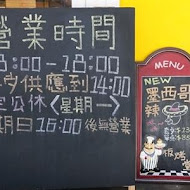 營業時間
8:00-18:00
供應到14:00
定公休〈星期一〉
期日16:00後無營業
MENU
NEW
墨西哥
辣